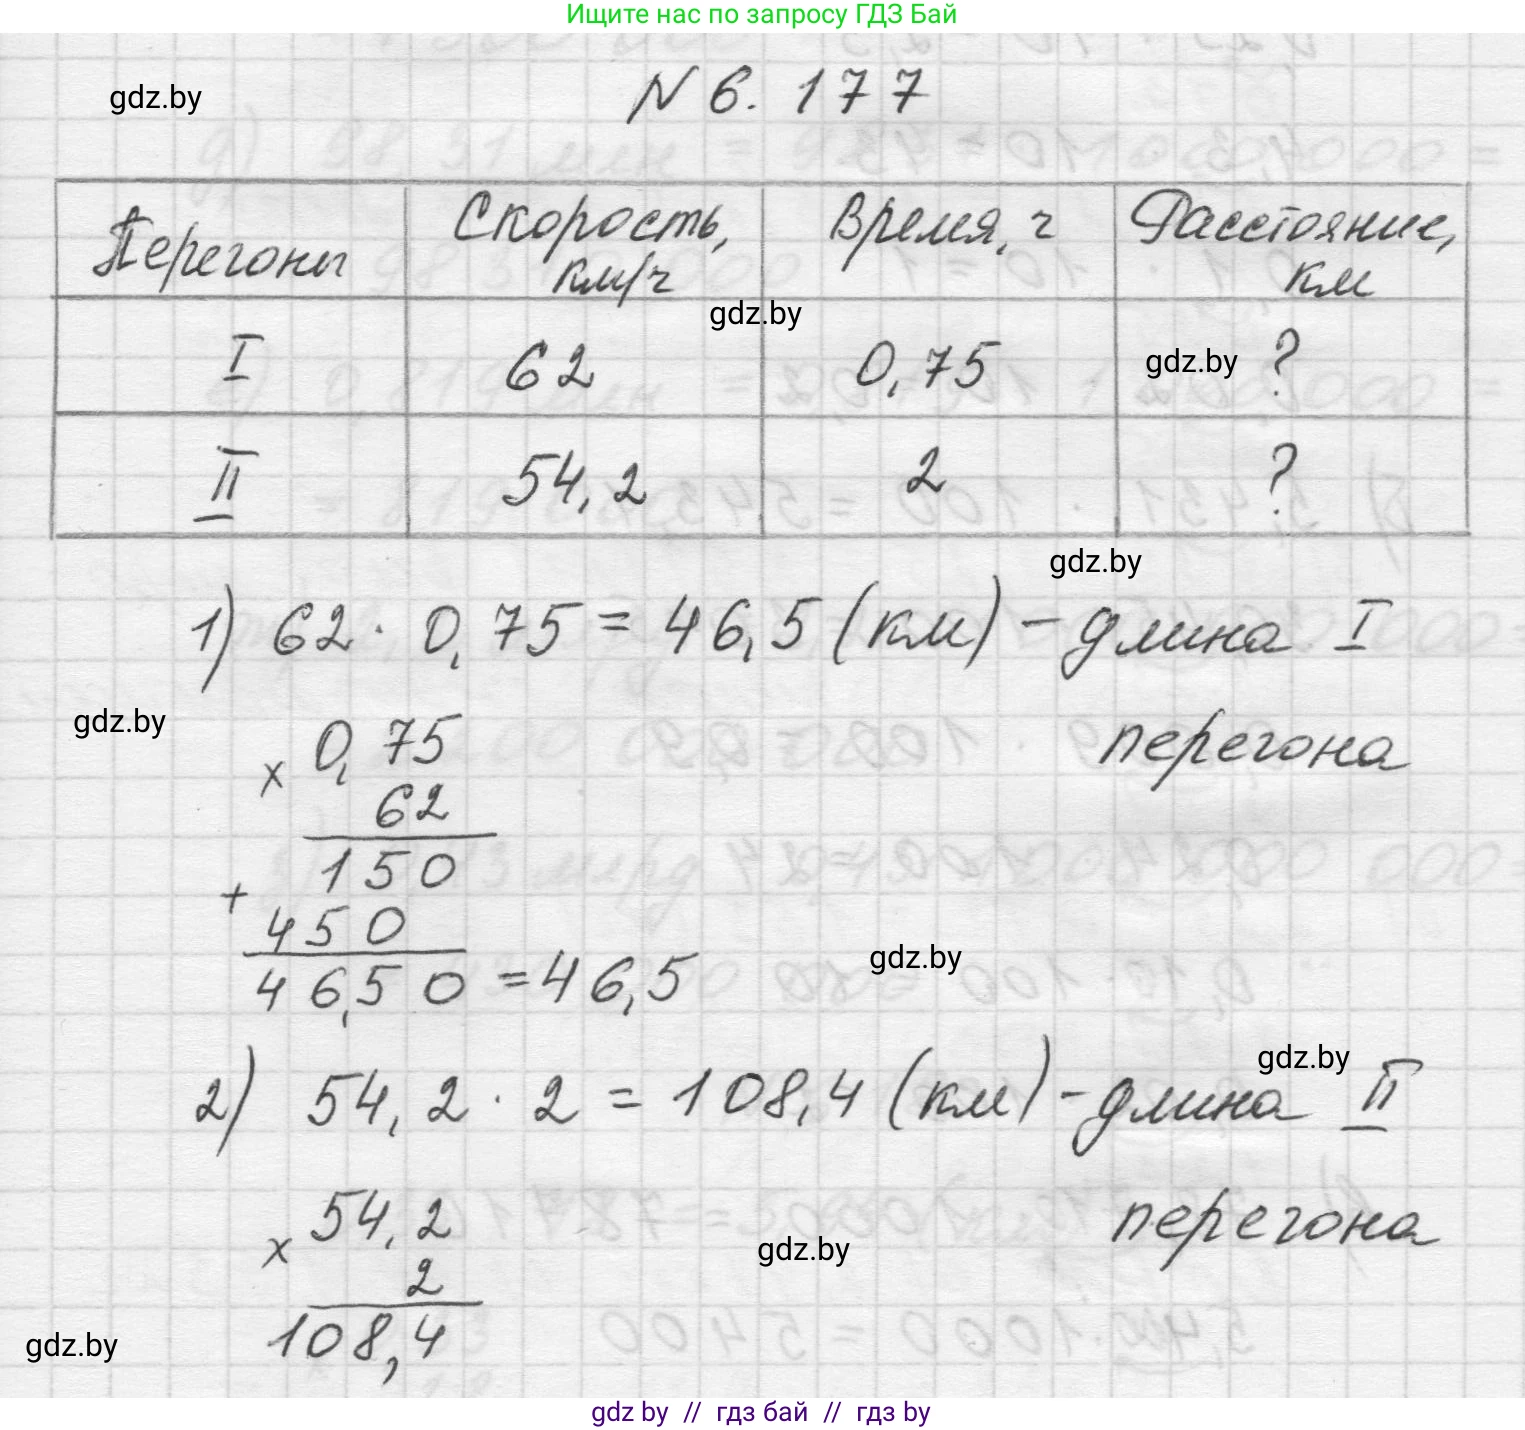 Ищите нас по запросу ГДЗ Бай
gdz.by
N 6. 177
Перегоны Скорость, км/ч Время, ч Расстояние, км
gdz.by
I 62 0,75 gdz.by ?
II 54,2 2 ?
gdz.by
1) 62 · 0,75 = 46,5 (км) - длина I
gdz.by
перегона
× 0,75
62
150
+
450
46,50 = 46,5
gdz.by
gdz.by
2) 54,2 · 2 = 108,4 (км) - длина II
перегона
× 54,2
2
gdz.by
108,4
gdz.by
gdz by // гдз бай // гдз by